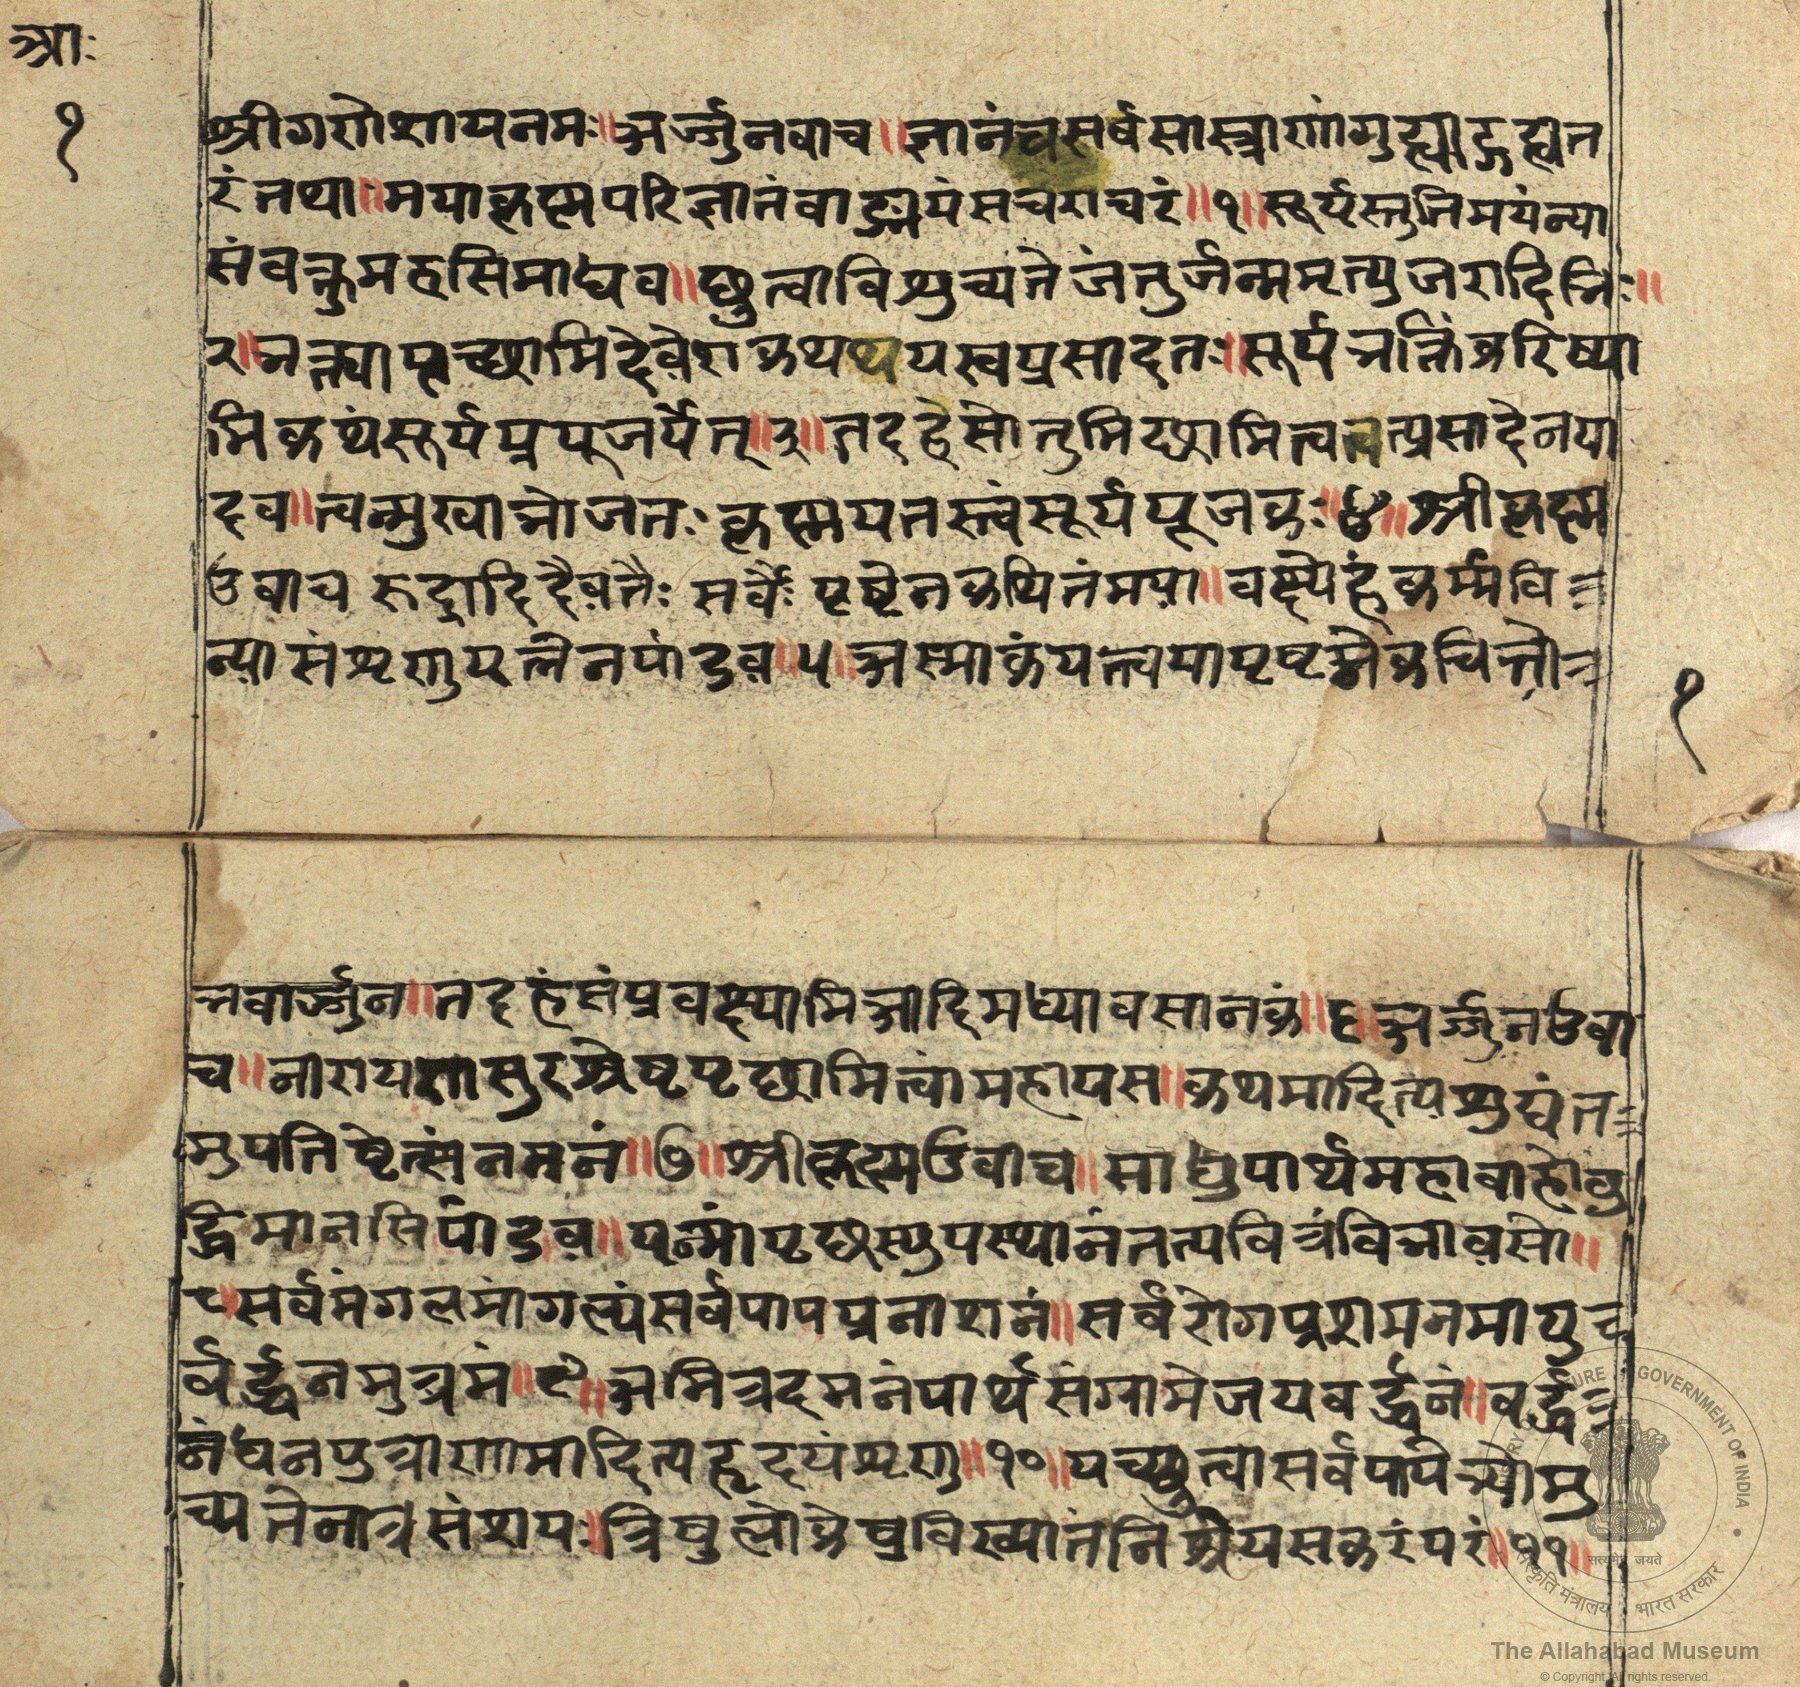 आः
१
श्रीगणेशायनमः॥अर्ज्जुनवाच॥ज्ञानंचसर्वसास्त्राणांगुह्याद्गुह्यत
रंतथा॥मयाकृष्णपरिज्ञातंवाङ्मयंसचराचरं॥१॥सूर्यस्तुतिमयंन्या
संवक्तुमर्हसिमाधव॥छ्रुत्वाविमुच्यतेजंतुर्जन्ममृत्युजरादिभिः॥
२॥भक्त्यापृच्छामिदेवेशकथथयस्वप्रसादतः॥सूर्यभक्तिंकरिष्या
मिकथंसूर्यप्रपूजयेत्॥३॥तदहंस्रोतुमिच्छामित्वत्प्रसादेनया
दव॥त्वन्मुखांभोजतःकृष्णयतस्त्वंसूर्यपूजकः॥४॥श्रीकृष्ण
उवाच रुद्रादिदैवतैः सर्वैः पृष्टेनकथितंमया॥वक्ष्येहंकर्म्मवि
न्यासंशृणुयत्नेनपांडव॥५॥अस्माकंयत्त्वयापृष्टमेकचित्तेन
१
त्तवार्ज्जुन॥तदहंसंप्रवक्ष्यामिआदिमध्यावसानकं॥६॥अर्ज्जुनउवा
च॥नारायणसुरश्रेष्टपृछामित्वांमहायस॥कथमादित्यमुद्यंत
मुपतिष्टेत्संनतनं॥७॥श्रीकृष्णउवाच॥साधुपार्थमहाबाहोबु
द्धिमानसिपांडव॥यन्मांपृछस्युपस्थानंतत्पवित्रंविभावसो॥
८॥सर्वमंगलमांगल्यंसर्वपापप्रनाशनं॥सर्वरोगप्रशमनमायु
र्वर्द्धनमुत्तमं॥९॥अमित्रदमनंपार्थसंग्रामेजयवर्द्धनं॥वर्द्ध
नंधनपुत्राणामादित्यहृदयंशृणु॥१०॥यच्छ्रुत्वासर्वपापेभ्योमु
च्यतेनात्रसंशयः॥त्रिषुलोकेषुविख्यातंनिश्रेयसकरंपरं॥११॥
MINISTRY OF CULTURE GOVERNMENT OF INDIA
सत्यमेव जयते
संस्कृति मंत्रालय भारत सरकार
The Allahabad Museum
© Copyright. All rights reserved.